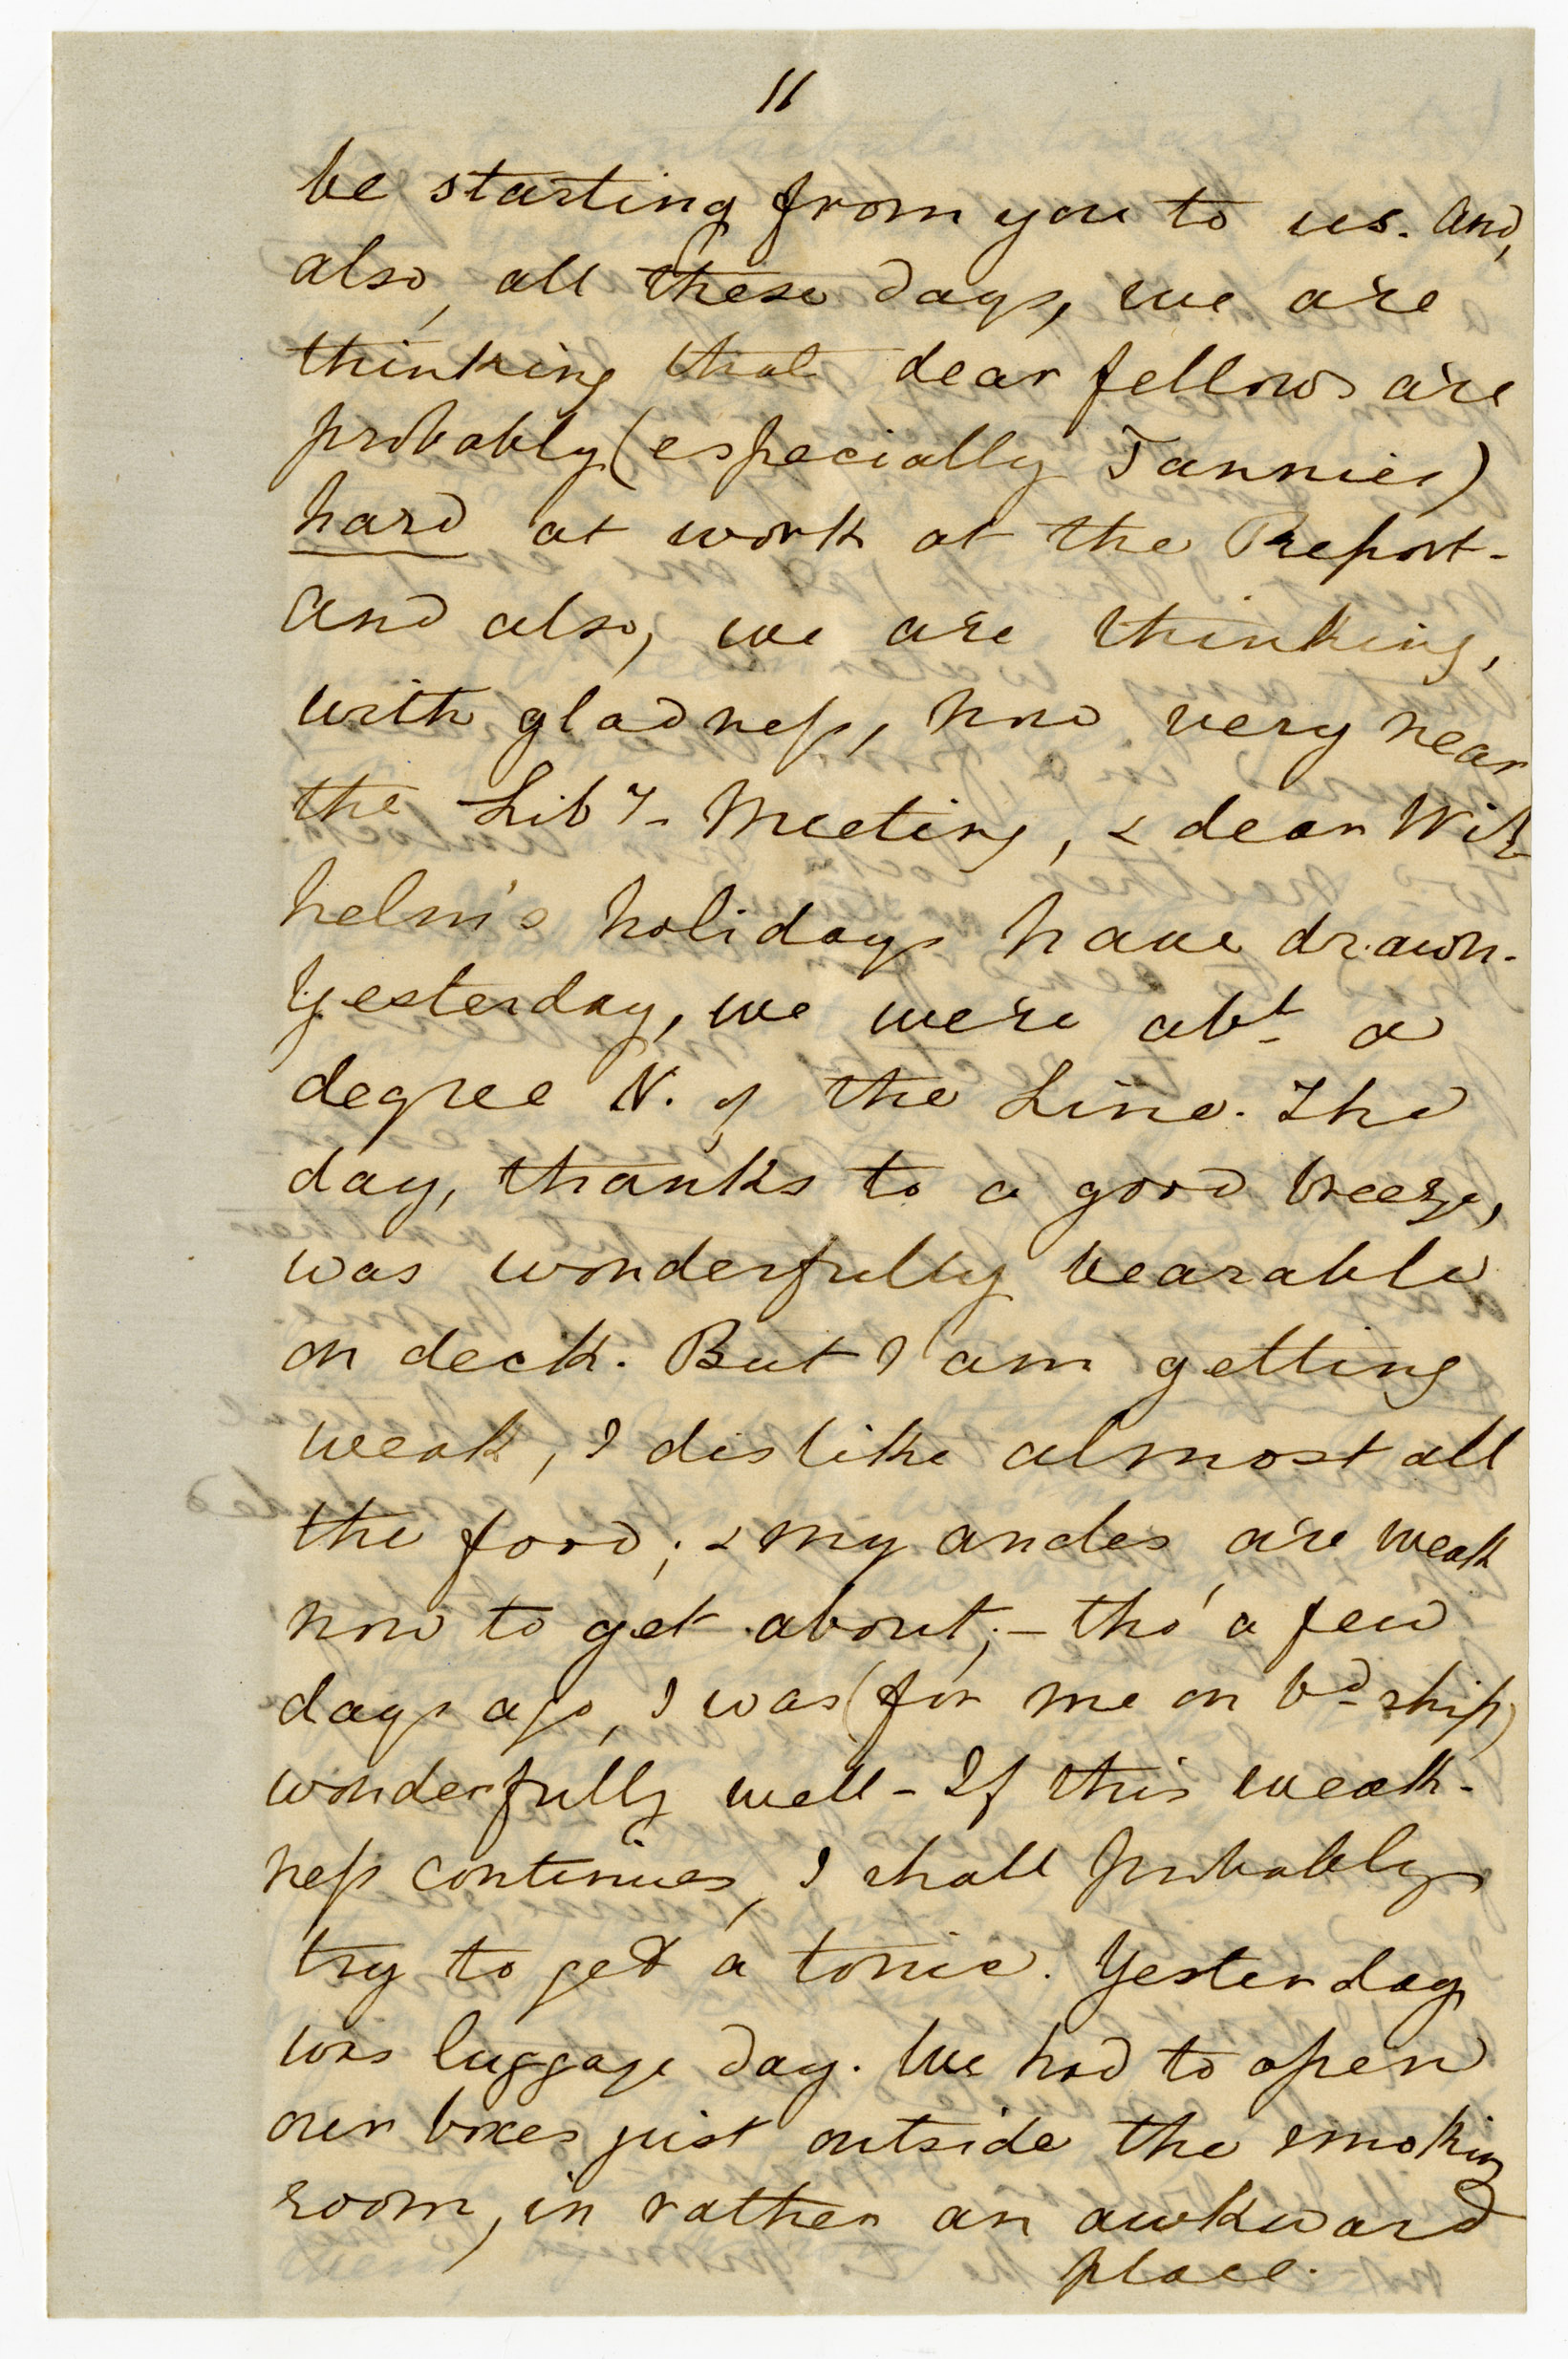 11
be starting from you to us. And,
also, all these days, we are
thinking that dear fellows are
probably (especially Tannies)
hard at work at the Report -
And also, we are thinking,
with gladness, how very near
the Liby. Meeting, & dear Wil-
helm's holidays have drawn.
Yesterday, we were abt. a
degree N. of the Line. The
day, thanks to a good breeze,
was wonderfully bearable
on deck. But I am getting
weak, I dislike almost all
the food; & my ancles are weak
now to get about; - tho' a few
days ago, I was (for me on bd. ship)
wonderfully well - If this weak-
ness continues, I shall probably
try to get a tonic. Yesterday
was luggage day. We had to open
our boxes just outside the smoking
room, in rather an awkward
place.